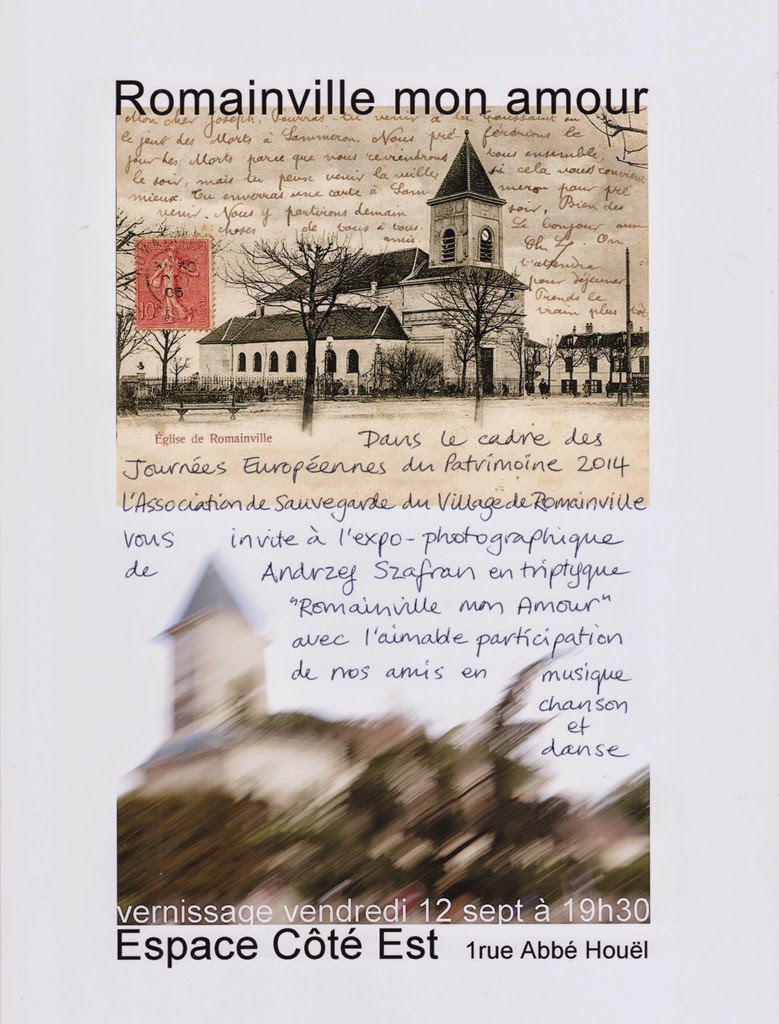 Romainville mon amour
Mon cher Joseph, Pourras-tu venir à la Toussaint ou
le jour des Morts à Sammeron. Nous préférerions le
jour des Morts parce que nous reviendrons tous ensemble
le soir, mais tu peux venir la veille si cela vous convient
mieux. Tu enverras une carte à Sammeron pour pré
venir. Nous y partirons demain soir, Bien des
choses de tous à tous Le bonjour aux
amis. On
t'attendra
pour déjeuner
Prends le
train plus tôt
10
05
Église de Romainville
Dans le cadre des
Journées Européennes du Patrimoine 2014
L'Association de Sauvegarde du Village de Romainville
vous invite à l'expo-photographique
de Andrzej Szafran en triptyque
"Romainville mon Amour"
avec l'aimable participation
de nos amis en musique
chanson
et
danse
vernissage vendredi 12 sept à 19h30
Espace Côté Est 1rue Abbé Houël